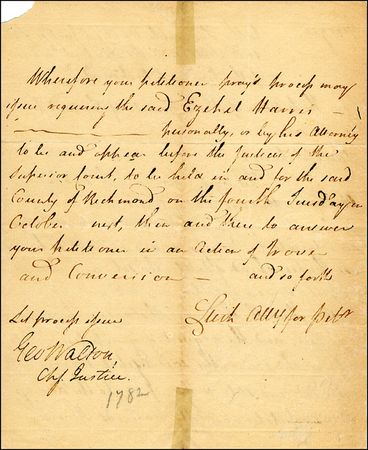 Wherefore your petitioner pray's process may
issue requiring the said Ezekel Harris —
personally, or by his Attorney
to be and appear before the Justices of the
Superior Court, to be held in and for the said
County of Richmond on the fourth Tuesday in
October next, then and there to answer
your petitioner in an Action of Trover
and Conversion — and so forth
Atty for Petr
Let process issue
Geo Walton,
Chf. Justice.
1782